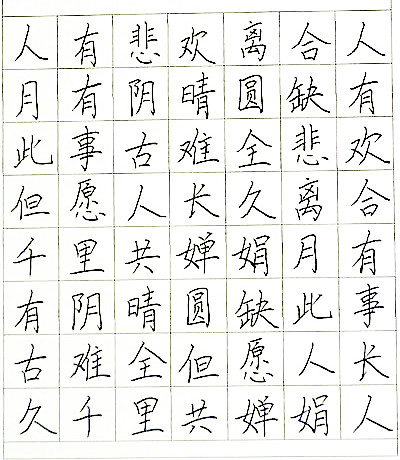 人有悲欢离合人
月有阴晴圆缺有
此事古难全悲欢
但愿人长久离合
千里共婵娟月有
有阴晴圆缺此事
古难全但愿人长
久千里共婵娟人